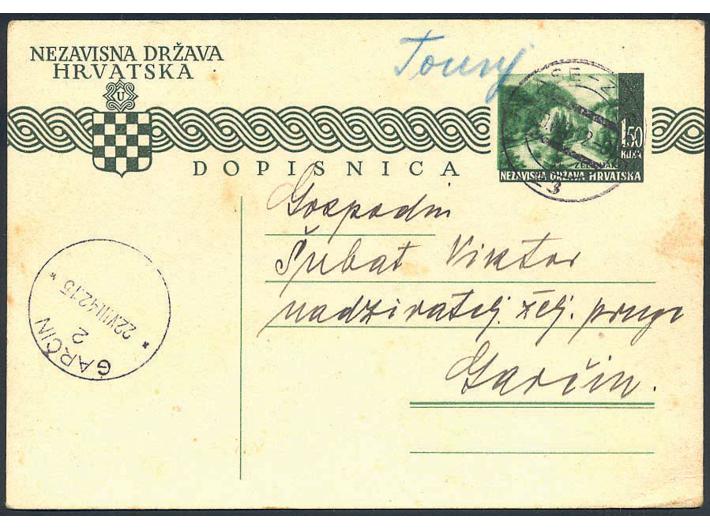 NEZAVISNA DRŽAVA
HRVATSKA
U
DOPISNICA
1.50
KUNA
NEZAVISNA DRŽAVA HRVATSKA
3
Gospodin
Šubat Viktor
nadziratelj. želj. pruge
Garčin.
GARČIN
2
22.VIII.42.15